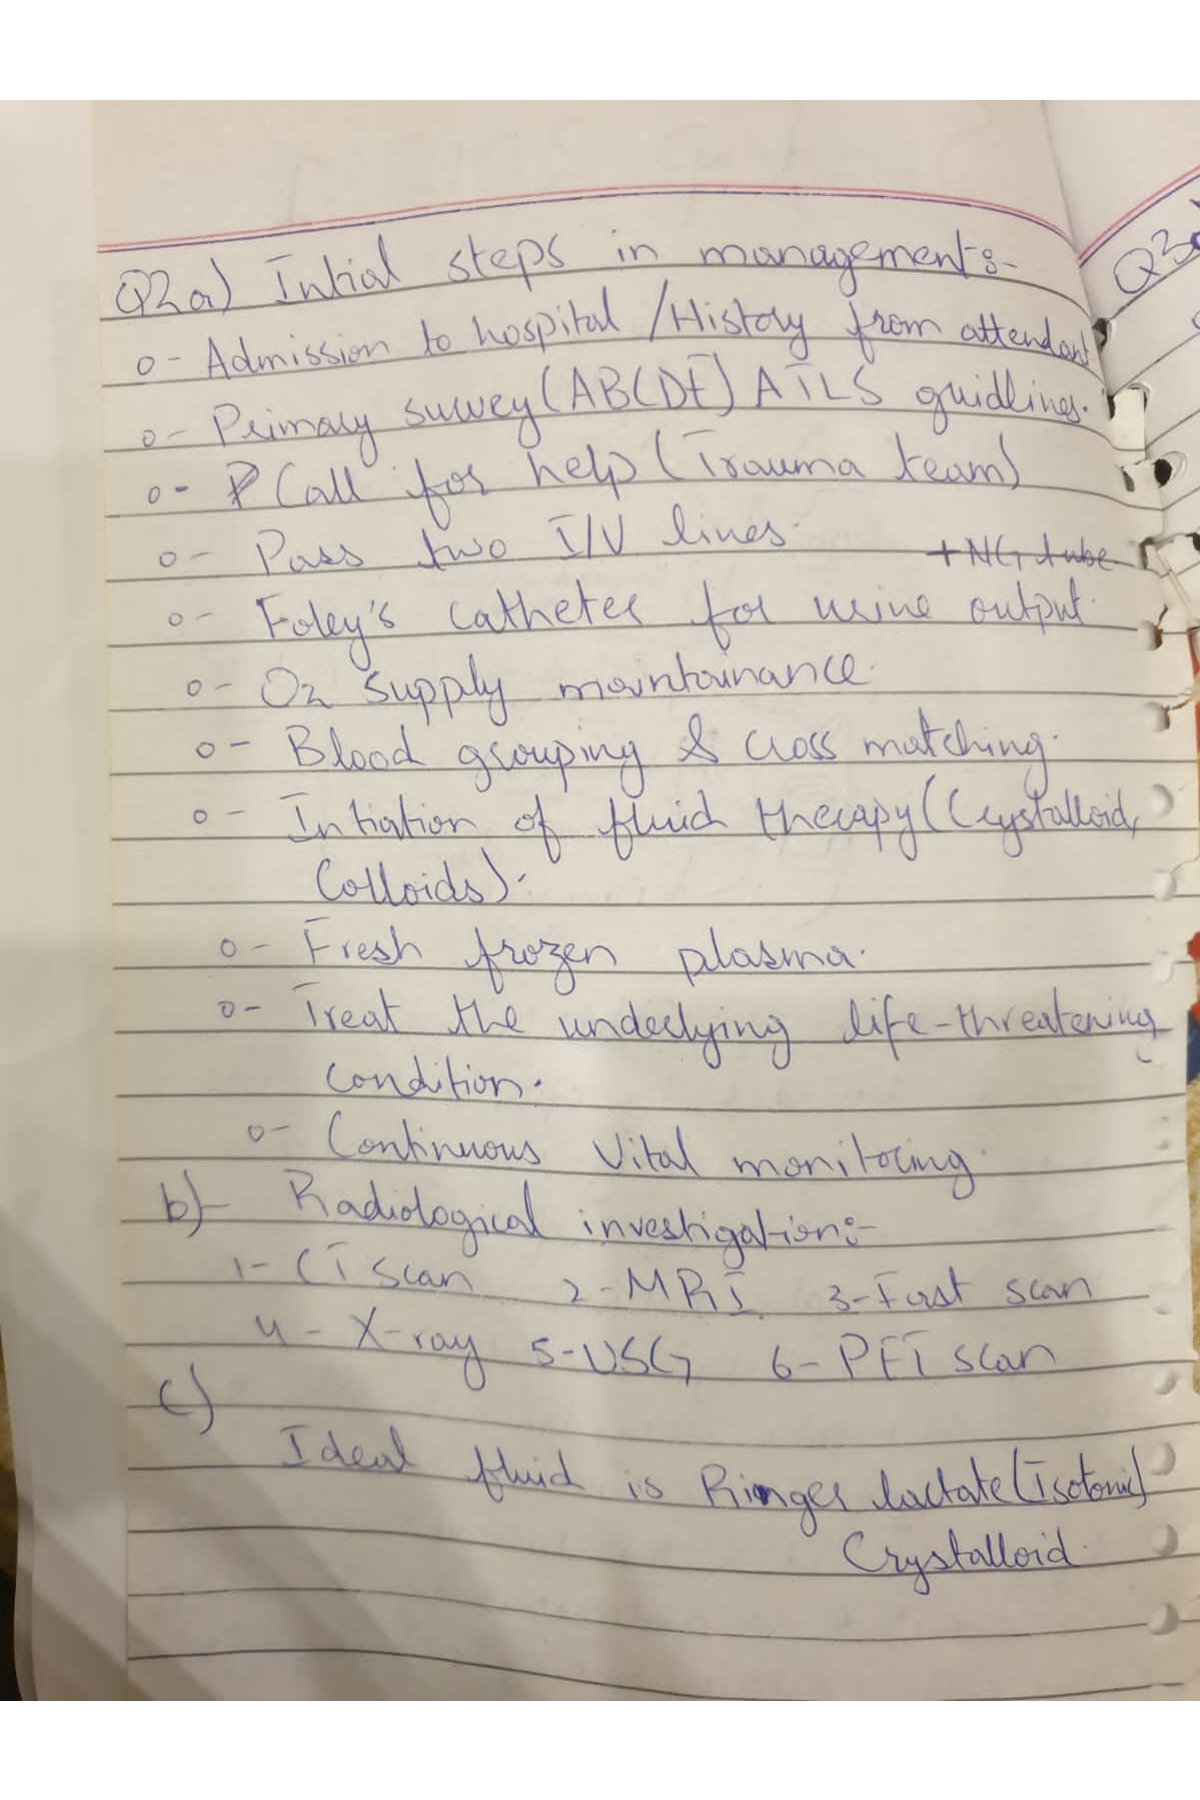 Q2a) Intial steps in management:-
o- Admission to hospital / History from attendant
o- Primary survey (ABCDE) ATLS guidlines.
o- Call for help (Trauma team)
o- Pass two I/V lines.
+NG tube
o- Foley's catheter for urine output.
o- O2 supply maintainance.
o- Blood grouping & cross matching.
o- Intiation of fluid therapy (Crystalloid,
Colloids).
o- Fresh frozen plasma.
o- Treat the underlying life-threatening
condition.
o- Continuous Vital monitoring.
b)- Radiological investigation:-
1- CT scan 2-MRI 3-Fast scan
4- X-ray 5-USG 6- PET scan
c)
Ideal fluid is Ringer lactate (Isotonic)
Crystalloid.
Q3